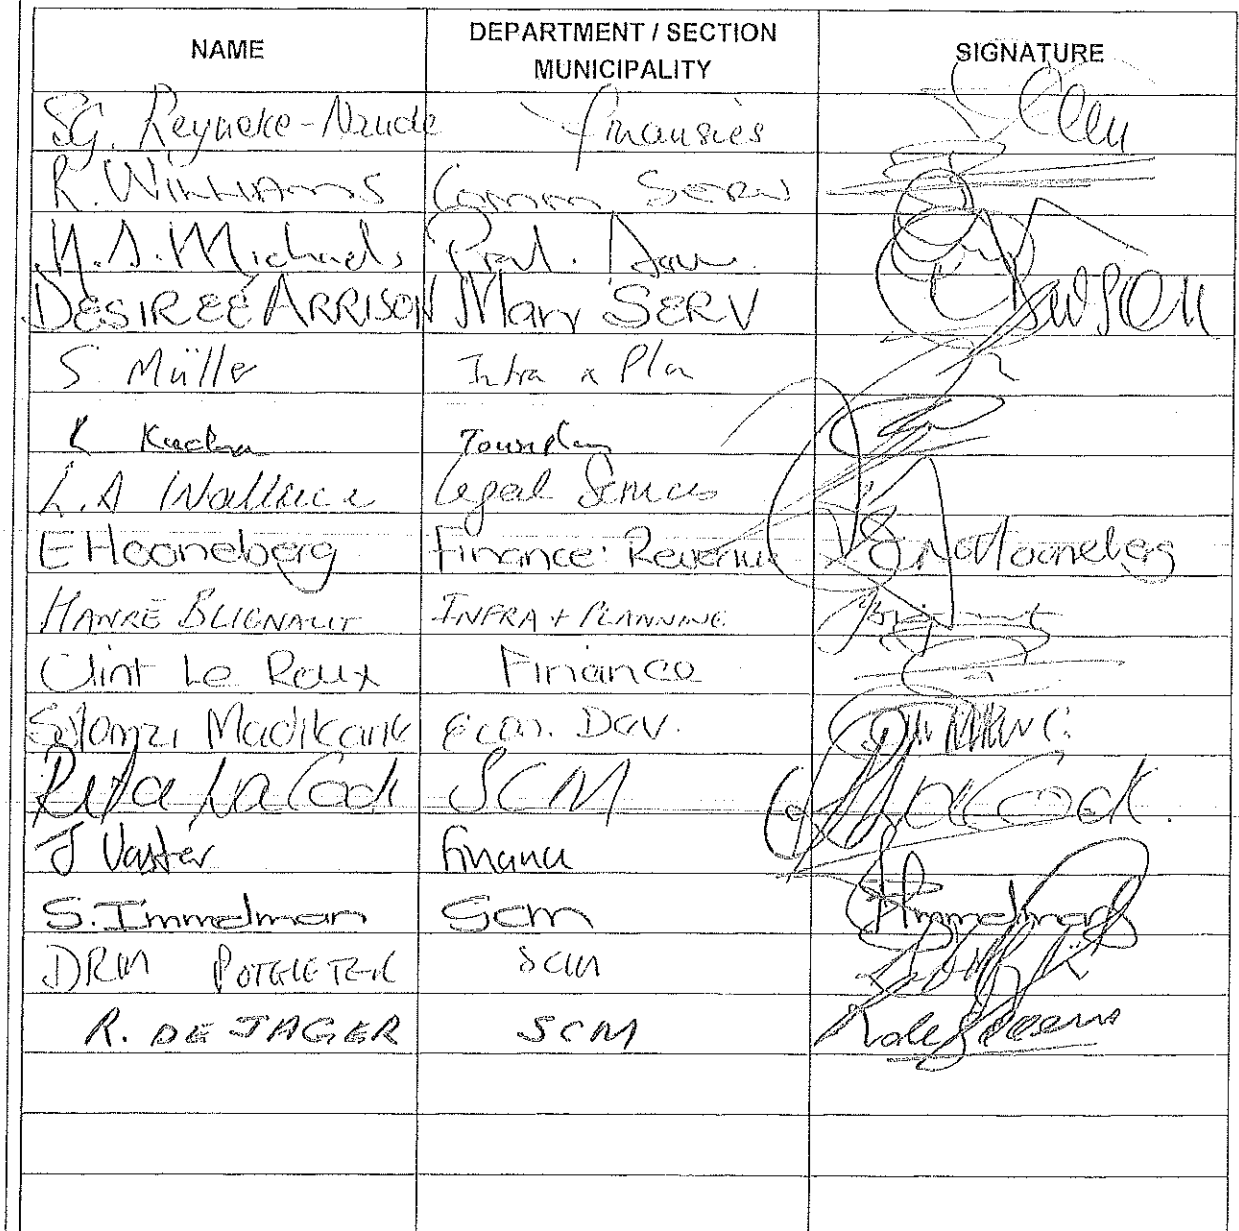 NAME DEPARTMENT / SECTION MUNICIPALITY SIGNATURE
SG. Reyneke-Naude finansies
R. WILLIAMS Comm Serv
Michaels
DESIREÉ ARRISON SERV
S. Müller Infra & Plan
L.A Wallace Legal Services
E Hooneberg Finance: Revenue Hooneberg
HANRÉ BLIGNAUT INFRA + PLANNING
Clint Le Roux Finance
Madikane Econ. Dev.
Rita La Cock SCM La Cock.
J Vaster Finance
S. Immelman Scm Immelman
DRM POTGIETER SCM
R. DE JAGER SCM